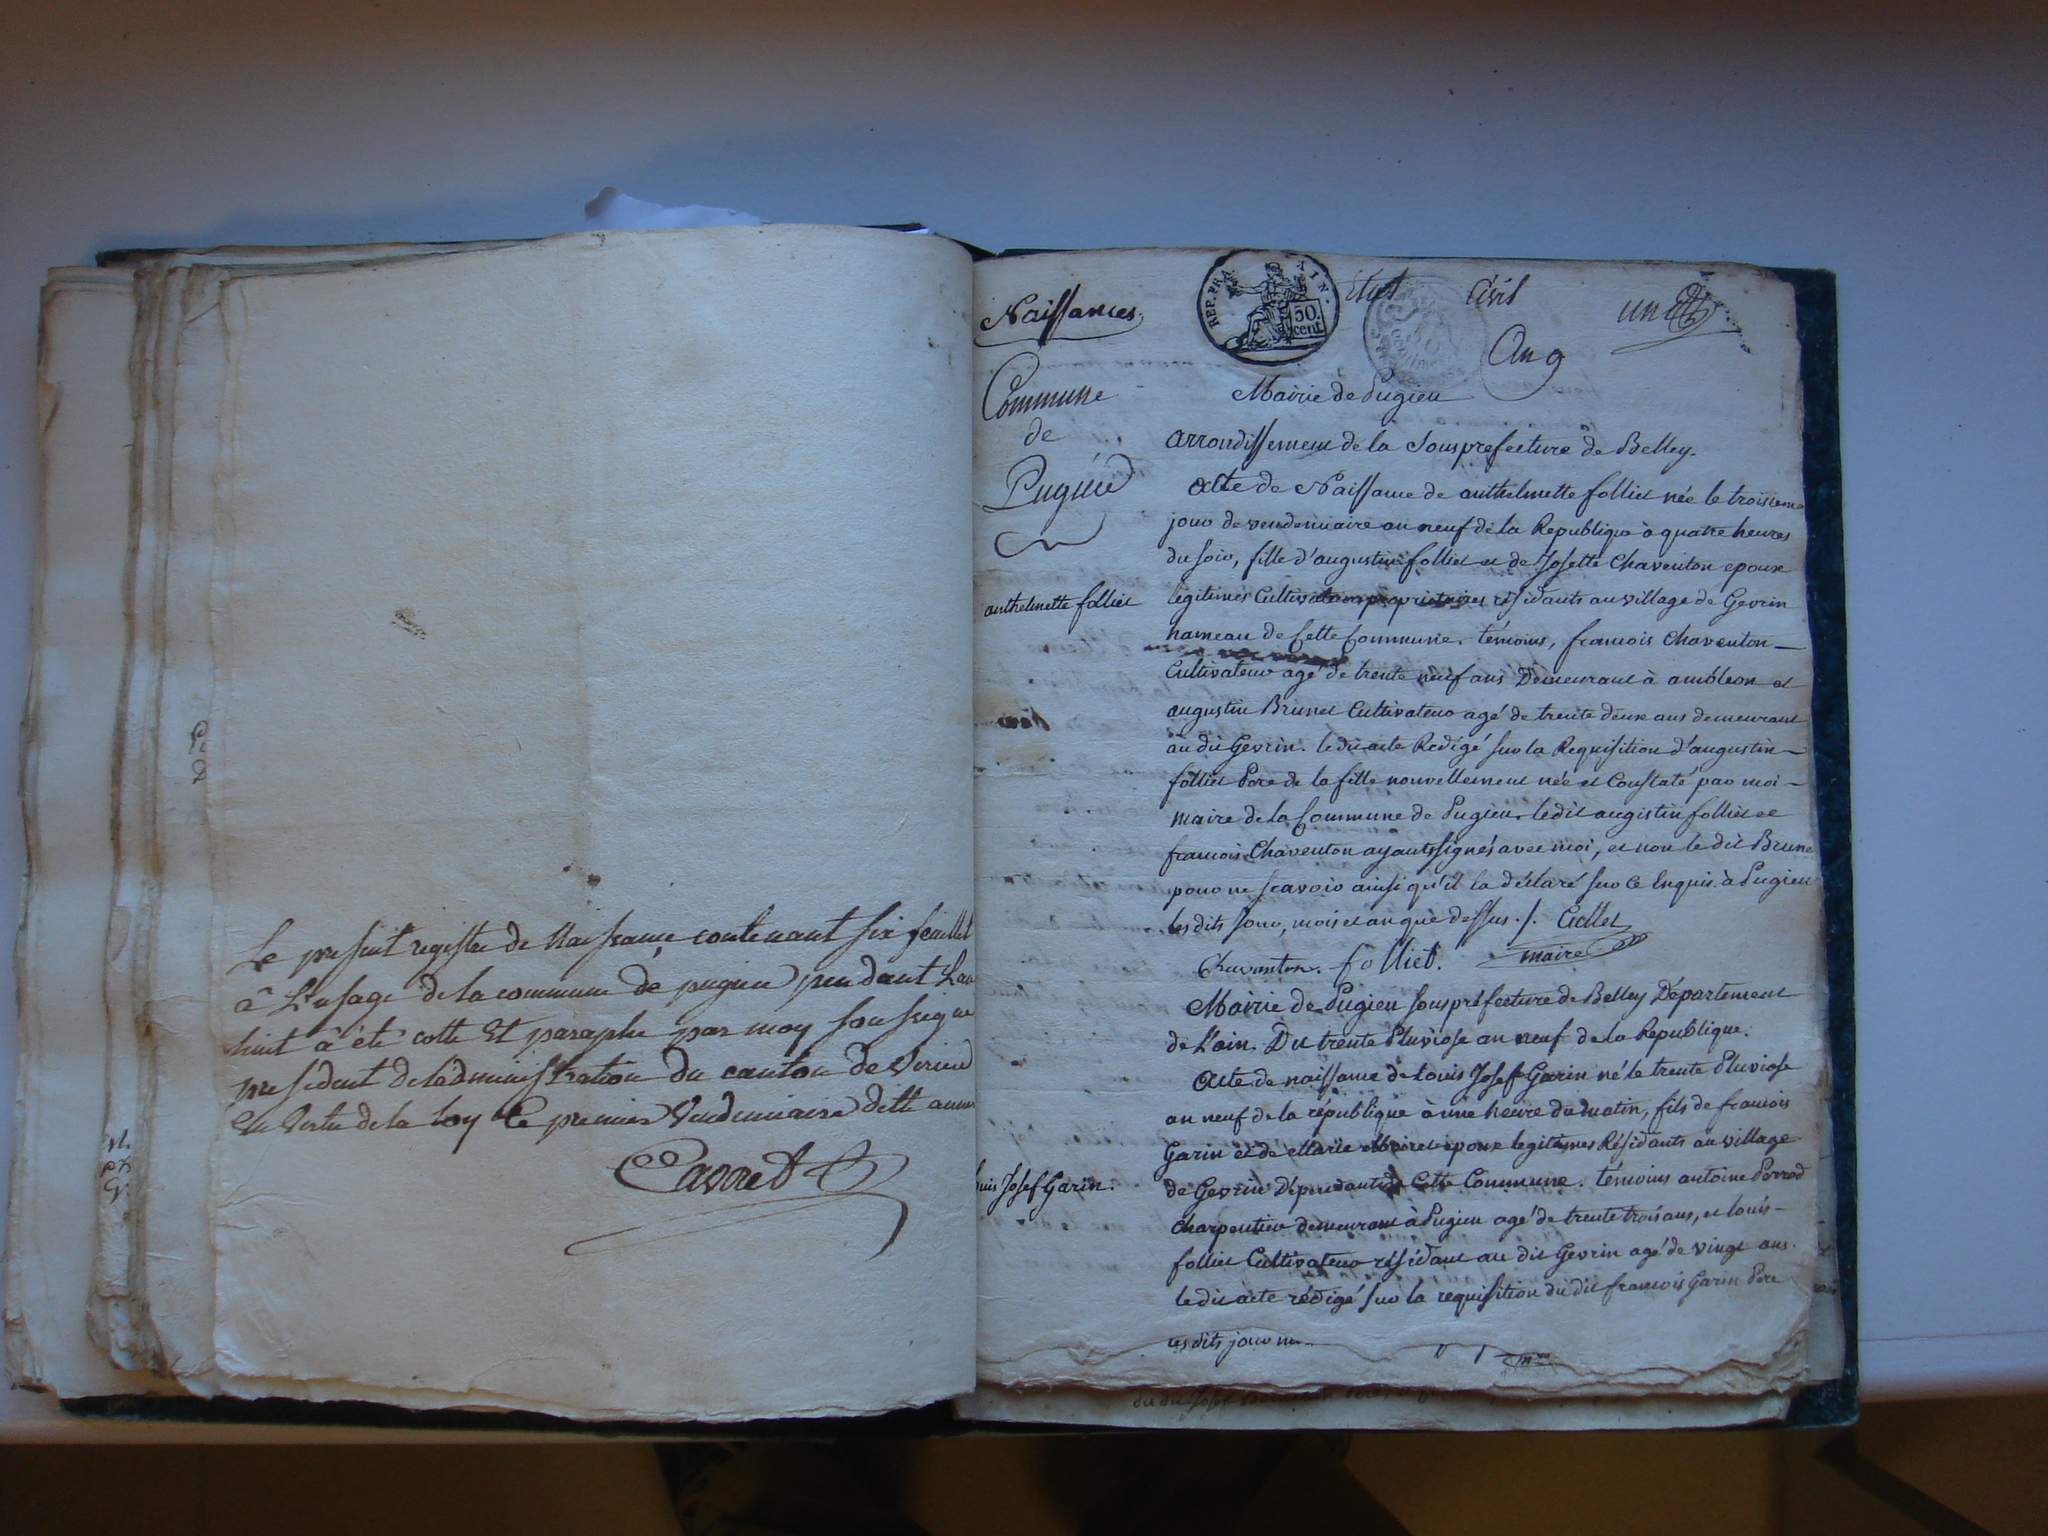 Le present registre de Naissance contenant six feuillet
à L'usage de la commune de pugieu pendant Lan
huit à été cotté Et paraphé par moy soussigné
president de l'administration du canton de virieu
En vertu de la loy Le premier vendemiaire ditte année
Cavret
Naissances
REP. FRA. AIN.
50. cent.
Etat Civil
un
An 9
Commune
de
Pugieu
Mairie de Pugieu
arrondissement de la Sousprefecture de Belley.
Acte de Naissance de anthelmette folliet née le troisieme
jour de vendemiaire an neuf de la Republique à quatre heures
du soir, fille d'augustin folliet et de Josette Chaventon epoux
anthelmette folliet
legitimes Cultivateurs propriétaires résidants au village de Gevrin
hameau de Cette Commune. témoins, francois Chaventon
Cultivateur agé de trente neuf ans Demeurant à ambléon et
augustin Brunet Cultivateur agé de trente deux ans demeurant
au dit Gevrin. le dit acte Redigé sur la Requisition d'augustin
folliet Pere de la fille nouvellement née et Constaté par moi
Maire de la Commune de Pugieu. le dit augistin folliet et
francois Chaventon ayants signés avec moi, et non le dit Brune
pour ne scavoir ainsi qu'il la déclaré sur ce Enquis. à Pugieu
les dits jour, mois et an que dessus ./.
Chaventon. folliet. maire
Mairie de Pugieu Souspréfecture de Belley Département
de L'ain. Du trente Pluviose an neuf de la Republique.
Acte de naissance de Louis Josef Garin né le trente Pluviose
an neuf de la république à une heure du matin, fils de francois
Garin et de Marie epoux legitimes Résidants au village
uis Josef Garin.
de Gevrin Dépendant de Cette Commune. témoins antoine Perrod
Charpentier demeurant à Pugieu agé de trente trois ans, et louis
folliet Cultivateur résidant au dit Gevrin agé de vingt ans.
le dit acte rédigé sur la requisition du dit francois Garin Pere
les dits jour
du dit Josef